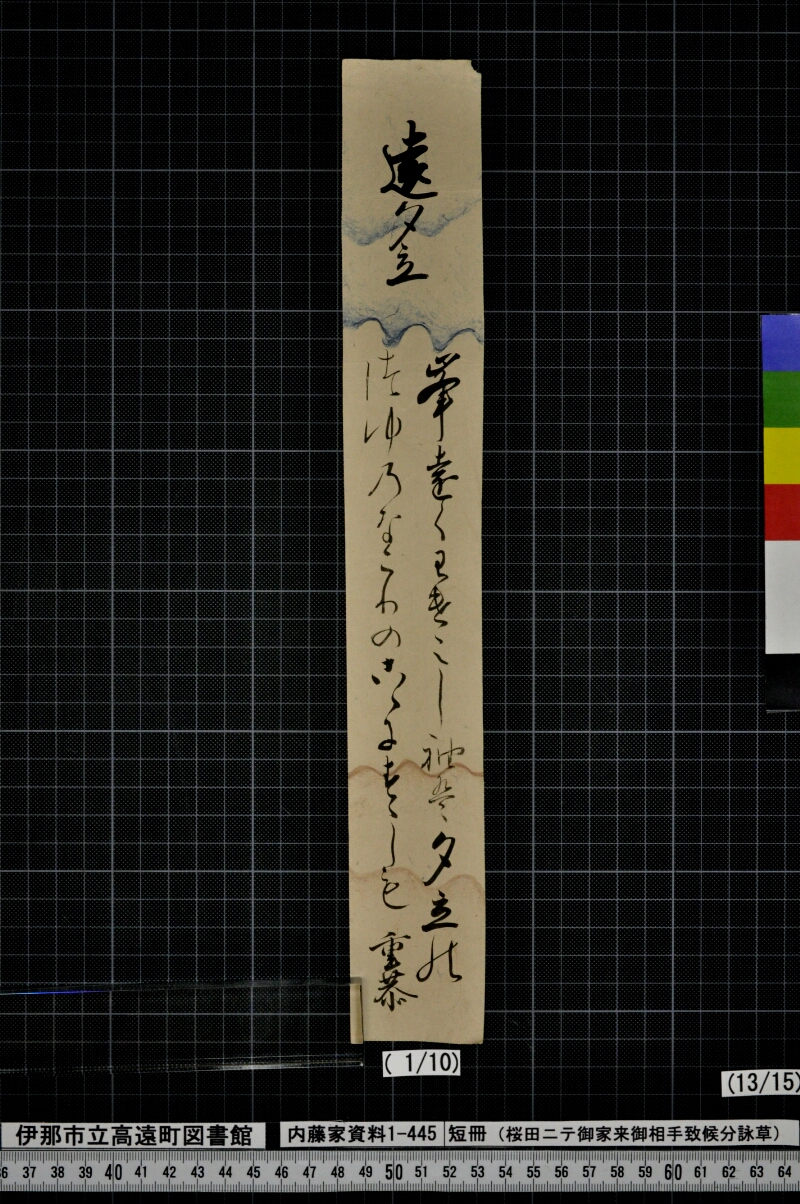 遠夕立
峯遠くわけこし袖は夕立の
つゆのなこりのこゝにすゝしも
重恭
( 1/10)
(13/15)
伊那市立高遠町図書館
内藤家資料1-445
短冊（桜田ニテ御家来御相手致候分詠草）
36 37 38 39 40 41 42 43 44 45 46 47 48 49 50 51 52 53 54 55 56 57 58 59 60 61 62 63 64